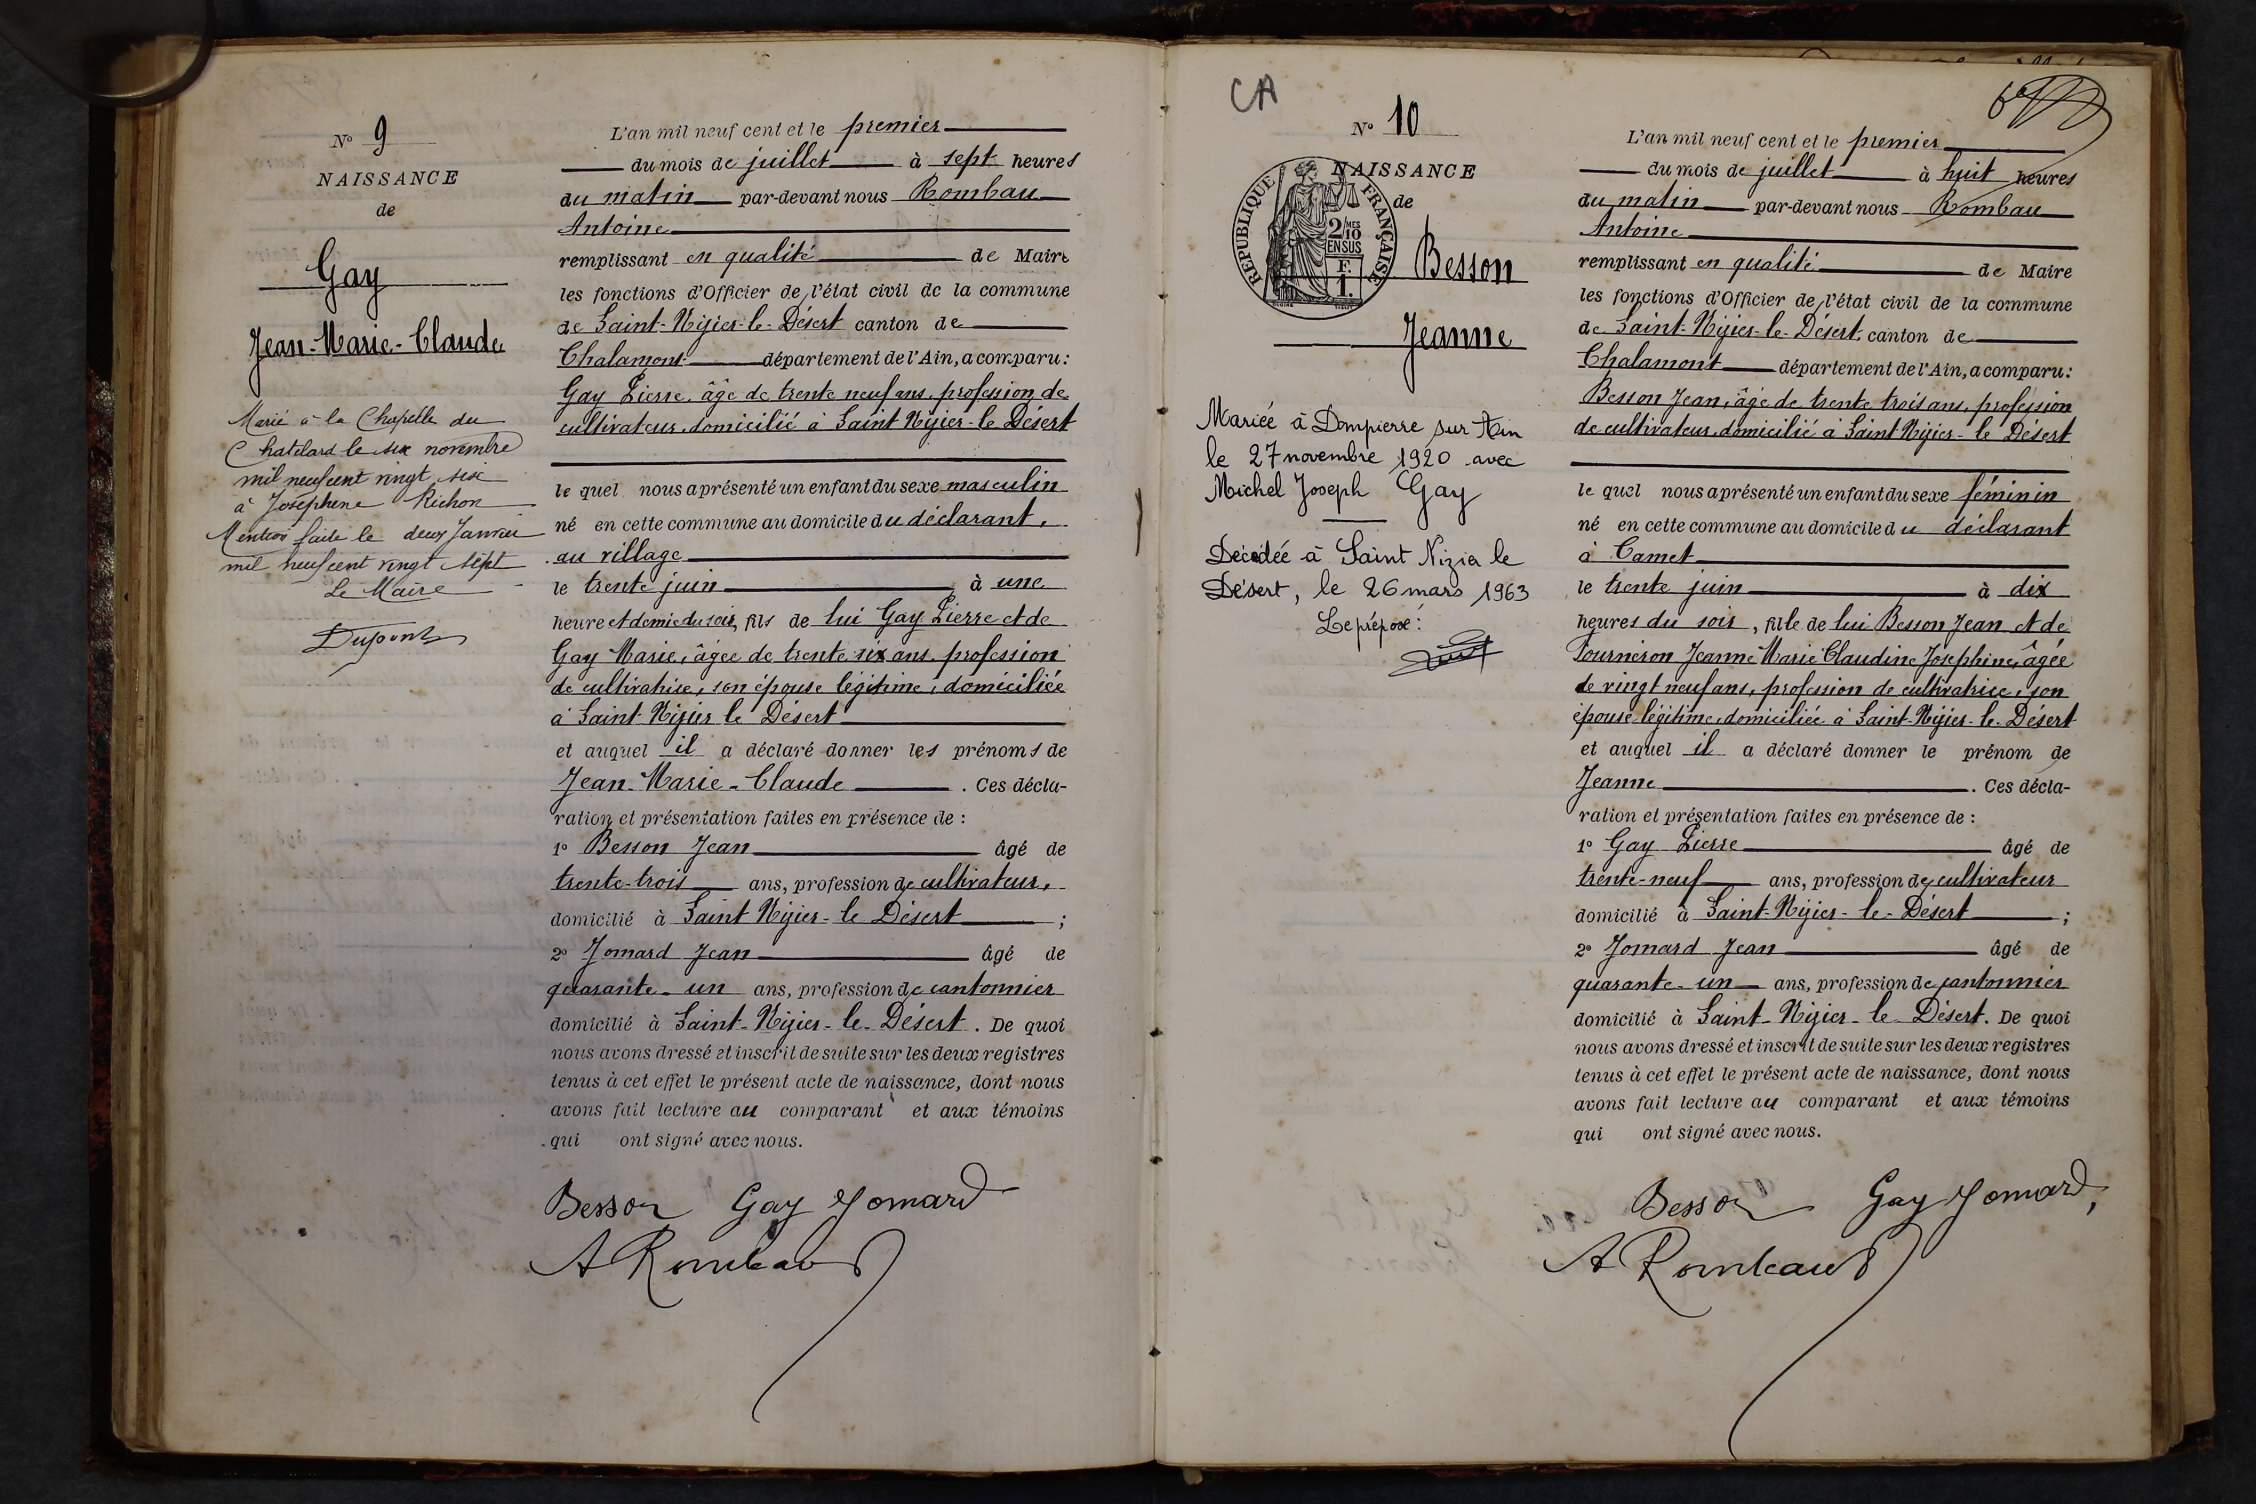 N° 9
NAISSANCE
de
Gay
Jean-Marie-Claude
Marié à la Chapelle du
Chatelard le six novembre
mil neuf cent vingt six
à Joséphine Richon
Mention faite le deux Janvier
mil neuf cent vingt sept
Le Maire
Dupont
L'an mil neuf cent et le premier
du mois de juillet à sept heures
du matin par-devant nous Rombau
Antoine
remplissant en qualité de Maire
les fonctions d'Officier de l'état civil de la commune
de Saint-Nizier-le-Désert canton de
Chalamont département de l'Ain, a comparu:
Gay Pierre, âgé de trente neuf ans, profession de
cultivateur, domicilié à Saint Nizier-le Désert
le quel nous a présenté un enfant du sexe masculin
né en cette commune au domicile du déclarant,
au village
le trente juin à une
heure et demie du soir, fils de lui Gay Pierre et de
Gay Marie, âgée de trente six ans, profession
de cultivatrice, son épouse légitime, domiciliée
à Saint-Nizier le Désert
et auquel il a déclaré donner les prénoms de
Jean-Marie-Claude. Ces décla-
ration et présentation faites en présence de :
1° Besson Jean âgé de
trente-trois ans, profession de cultivateur,
domicilié à Saint Nizier-le Désert ;
2° Jomard Jean âgé de
quarante-un ans, profession de cantonnier
domicilié à Saint-Nizier-le-Désert. De quoi
nous avons dressé et inscrit de suite sur les deux registres
tenus à cet effet le présent acte de naissance, dont nous
avons fait lecture au comparant et aux témoins
qui ont signé avec nous.
Besson Gay Jomard
A Rombau
CA
N° 10
NAISSANCE
de
RÉPUBLIQUE FRANÇAISE
2/MES
10
EN SUS
F.
1.
Besson
Jeanne
Mariée à Dompierre sur Ain
le 27 novembre 1920 avec
Michel Joseph Gay
Décédée à Saint Nizier le
Désert, le 26 mars 1963
Le préposé :
L'an mil neuf cent et le premier
du mois de juillet à huit heures
du matin par-devant nous Rombau
Antoine
remplissant en qualité de Maire
les fonctions d'Officier de l'état civil de la commune
de Saint-Nizier-le-Désert, canton de
Chalamont département de l'Ain, a comparu:
Besson Jean, âgé de trente trois ans, profession
de cultivateur, domicilié à Saint Nizier-le Désert
le quel nous a présenté un enfant du sexe féminin
né en cette commune au domicile du déclarant
à Camet
le trente juin à dix
heures du soir, fille de lui Besson Jean et de
Tourneron Jeanne Marie Claudine Josephine, âgée
de vingt neuf ans, profession de cultivatrice, son
épouse légitime, domiciliée à Saint-Nizier-le-Désert
et auquel il a déclaré donner le prénom de
Jeanne. Ces décla-
ration et présentation faites en présence de :
1° Gay Pierre âgé de
trente-neuf ans, profession de cultivateur
domicilié à Saint-Nizier-le-Désert ;
2° Jomard Jean âgé de
quarante-un ans, profession de cantonnier
domicilié à Saint-Nizier-le Désert. De quoi
nous avons dressé et inscrit de suite sur les deux registres
tenus à cet effet le présent acte de naissance, dont nous
avons fait lecture au comparant et aux témoins
qui ont signé avec nous.
Besson Gay Jomard
A Rombau